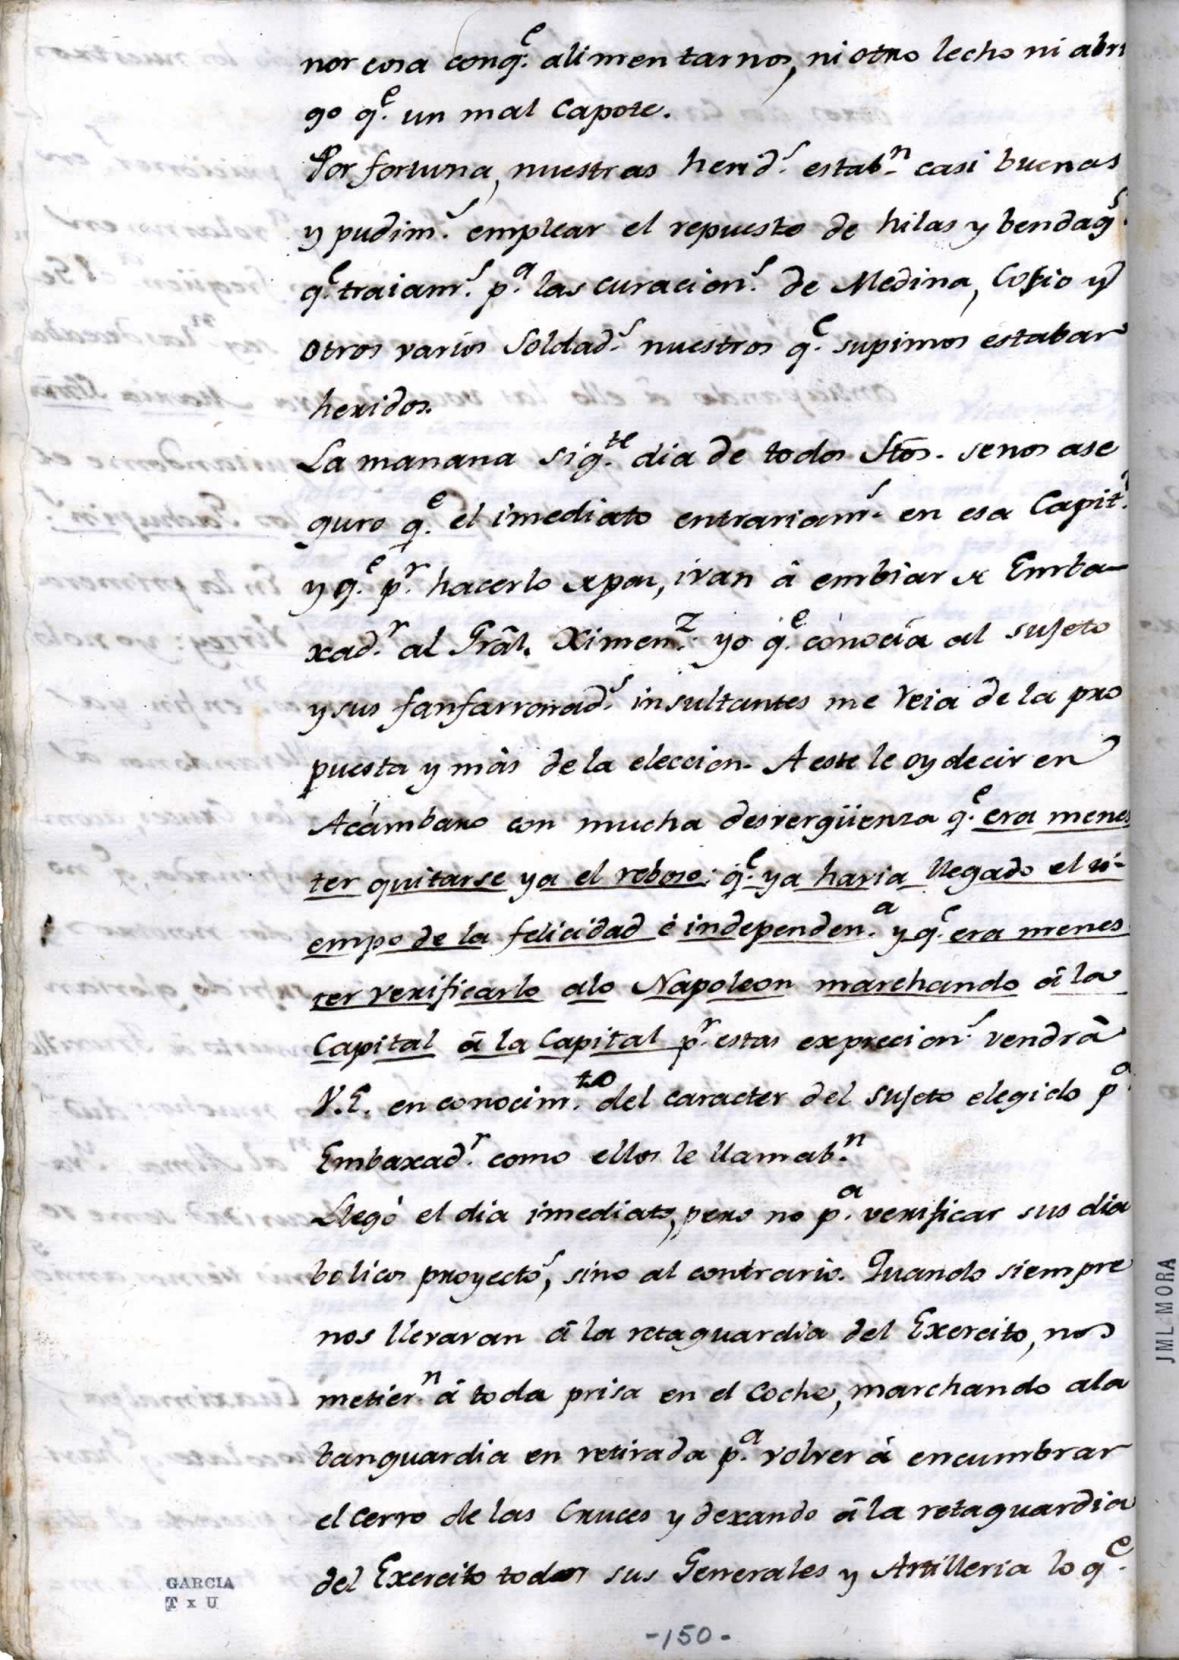 nor cosa conq.e alimentarnos, ni otro lecho ni abri
go q.e un mal Capote.
Por fortuna, nuestras herid.s estab.n casi buenas
y pudim.s emplear el repuesto de hilas y bendag.s
q.e traiam.s p.a las curacion.s de Medina, Cosio y
otros varios Soldad.s nuestros q.e supimos estaban
heridos.
La manana sig.te dia de todos Stõs. senos ase
guro q.e el imediato entrariam.s en esa Capit.l
y q.e p.r hacerlo en paz, ivan â embiar de Emba-
xad.r al Grâl. Ximen.z yo q.e conocîa al sujeto
y sus fanfarronad.s insultantes me reia de la pro
puesta y màs de la eleccion. A este le oy decir en
Acámbaro con mucha desvergüenza q.e era menes
ter quitarse ya el reboso: q.e ya havia llegado el ti-
empo de la felicidad è independen.a y q.e era menes
ter verificarlo alo Napoleon marchando â la
Capital â la Capital p.r estas exprecion.s vendrà
V.E. en conocim.to del caracter del sujeto elegido p.a
Embaxad.r como ellos le llamab.n
Llegò el dia imediato, pero no p.a verificar sus dia
bolicos proyectos, sino al contrario. Quando siempre
nos llevavan â la retaguardia del Exercito, nos
metier.n â toda prisa en el Coche, marchando ala
banguardia en retirada p.a volver â encumbrar
el cerro de las Cruces y dexando â la retaguardia
del Exercito todos sus Generales y Artilleria lo q.e
-150-
GARCIA
T x U
JML MORA